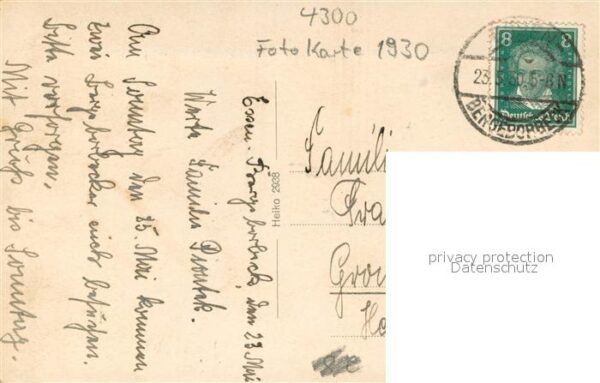 4300
Foto Karte 1930
8 8
23.5.30.5-6N
Deutsches Reich
Essen-Borgeborbeck, den 23 Mai
Werte Familie
Am Sonntag den 25. Mai kommen
zwei Borgeborbecker euch besuchen.
Bitte vorsorgen.
Mit Gruß bis Sonntag.
Heiko 2938
Famili
Fra
Gro
privacy protection
Datenschutz